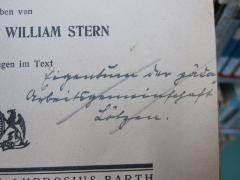 ben von
WILLIAM STERN
gen im Text
Eigentum der päda
Arbeitsgemeinschaft
Lötzen.
AMBROSIUS BARTH